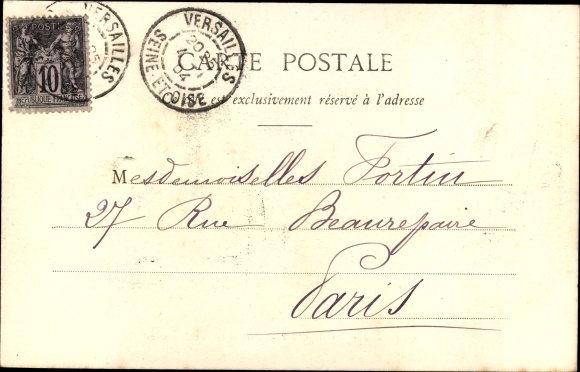 POSTES
10
REPUBLIQUE FRANÇAISE
VERSAILLES
VERSAILLES
04
SEINE-ET-OISE
CARTE POSTALE
est exclusivement réservé à l'adresse
Mesdemoiselles Fortin
27 Rue Beaurepaire
Paris